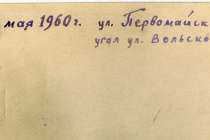 мая 1960 г. ул. Первомайск
угол ул. Вольско